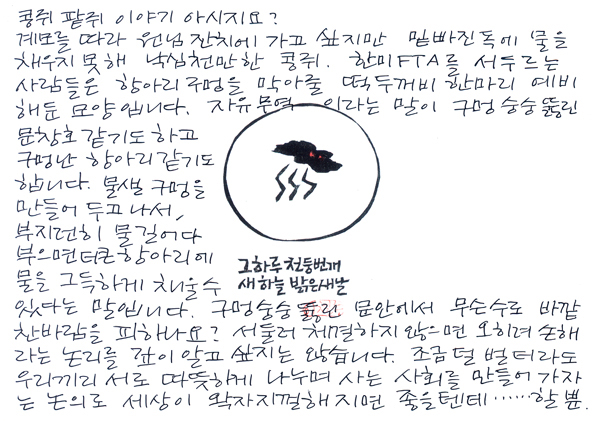 콩쥐 팥쥐 이야기 아시지요?
계모를 따라 원님 잔치에 가고 싶지만 밑빠진 독에 물을
채우지 못해 낙심천만한 콩쥐. 한미FTA를 서두르는
사람들은 항아리 구멍을 막아줄 떡두꺼비 한마리 예비
해둔 모양입니다. 자유무역 이라는 말이 구멍 숭숭 뚫린
문창호 같기도 하고
구멍난 항아리 같기도
합니다. 물샐 구멍을
만들어 두고 나서,
부지런히 물 길어다
부으면 터큰 항아리에
물을 그득하게 채울 수
있다는 말입니다. 구멍숭숭 뚫린 문안에서 무슨수로 바깥
찬바람을 피하나요? 서둘러 체결하지 않으면 오히려 손해
라는 논리를 깊이 알고 싶지는 않습니다. 조금 덜 벌더라도
우리끼리 서로 따뜻하게 나누며 사는 사회를 만들어 가자
는 논의로 세상이 왁자지껄해지면 좋을텐데……할 뿐.
그 하루 천둥번개
새 하늘 밝은 새날